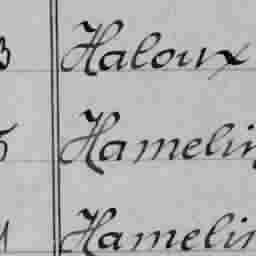 3 Haloux
5 Hamelin
Hamelin